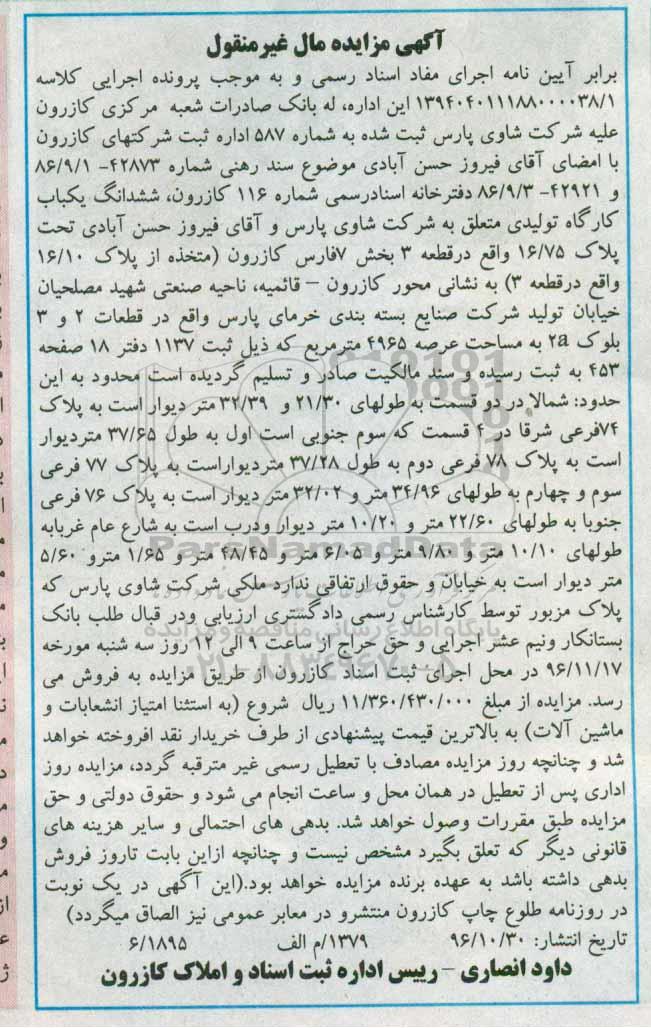 آگهی مزایده مال غیرمنقول
برابر آیین نامه اجرای مفاد اسناد رسمی و به موجب پرونده اجرایی کلاسه
۱۳۹۴۰۴۰۱۱۱۸۸۰۰۰۰۳۸/۱ این اداره، له بانک صادرات شعبه مرکزی کازرون
علیه شرکت شاوی پارس ثبت شده به شماره ۵۸۷ اداره ثبت شرکتهای کازرون
با امضای آقای فیروز حسن آبادی موضوع سند رهنی شماره ۴۲۸۷۳- ۸۶/۹/۱
و ۴۲۹۲۱- ۸۶/۹/۳ دفترخانه اسنادرسمی شماره ۱۱۶ کازرون، ششدانگ یکباب
کارگاه تولیدی متعلق به شرکت شاوی پارس و آقای فیروز حسن آبادی تحت
پلاک ۱۶/۷۵ واقع درقطعه ۳ بخش ۷فارس کازرون (متخذه از پلاک ۱۶/۱۰
واقع درقطعه ۳) به نشانی محور کازرون – قائمیه، ناحیه صنعتی شهید مصلحیان
خیابان تولید شرکت صنایع بسته بندی خرمای پارس واقع در قطعات ۲ و ۳
بلوک ۲a به مساحت عرصه ۴۹۶۵ مترمربع که ذیل ثبت ۱۱۳۷ دفتر ۱۸ صفحه
۴۵۳ به ثبت رسیده و سند مالکیت صادر و تسلیم گردیده است محدود به این
حدود: شمالا در دو قسمت به طولهای ۲۱/۳۰ و ۳۲/۳۹ متر دیوار است به پلاک
۷۴فرعی شرقا در ۴ قسمت که سوم جنوبی است اول به طول ۳۷/۶۵ متردیوار
است به پلاک ۷۸ فرعی دوم به طول ۳۷/۲۸ متردیواراست به پلاک ۷۷ فرعی
سوم و چهارم به طولهای ۳۴/۹۶ متر و ۳۲/۰۲ متر دیوار است به پلاک ۷۶ فرعی
جنوبا به طولهای ۲۲/۶۰ متر و ۱۰/۲۰ متر دیوار ودرب است به شارع عام غربابه
طولهای ۱۰/۱۰ متر و ۹/۸۰ متر و ۶/۰۵ متر و ۴۸/۴۵ متر و ۱/۶۵ مترو ۵/۶۰
متر دیوار است به خیابان و حقوق ارتفاقی ندارد ملکی شرکت شاوی پارس که
پلاک مزبور توسط کارشناس رسمی دادگستری ارزیابی ودر قبال طلب بانک
بستانکار ونیم عشر اجرایی و حق حراج از ساعت ۹ الی ۱۲ روز سه شنبه مورخه
۹۶/۱۱/۱۷ در محل اجرای ثبت اسناد کازرون از طریق مزایده به فروش می
رسد. مزایده از مبلغ ۱۱/۳۶۰/۴۳۰/۰۰۰ ریال شروع (به استثنا امتیاز انشعابات و
ماشین آلات) به بالاترین قیمت پیشنهادی از طرف خریدار نقد افروخته خواهد
شد و چنانچه روز مزایده مصادف با تعطیل رسمی غیر مترقبه گردد، مزایده روز
اداری پس از تعطیل در همان محل و ساعت انجام می شود و حقوق دولتی و حق
مزایده طبق مقررات وصول خواهد شد. بدهی های احتمالی و سایر هزینه های
قانونی دیگر که تعلق بگیرد مشخص نیست و چنانچه ازاین بابت تاروز فروش
بدهی داشته باشد به عهده برنده مزایده خواهد بود.(این آگهی در یک نوبت
در روزنامه طلوع چاپ کازرون منتشرو در معابر عمومی نیز الصاق میگردد)
تاریخ انتشار: ۹۶/۱۰/۳۰ ۱۳۷۹/م الف ۶/۱۸۹۵
داود انصاری – رییس اداره ثبت اسناد و املاک کازرون
ParsNamadData
پایگاه اطلاع رسانی مناقصه و مزایده
۰۲۱-۸۸۳۴۹۶۷۰-۸